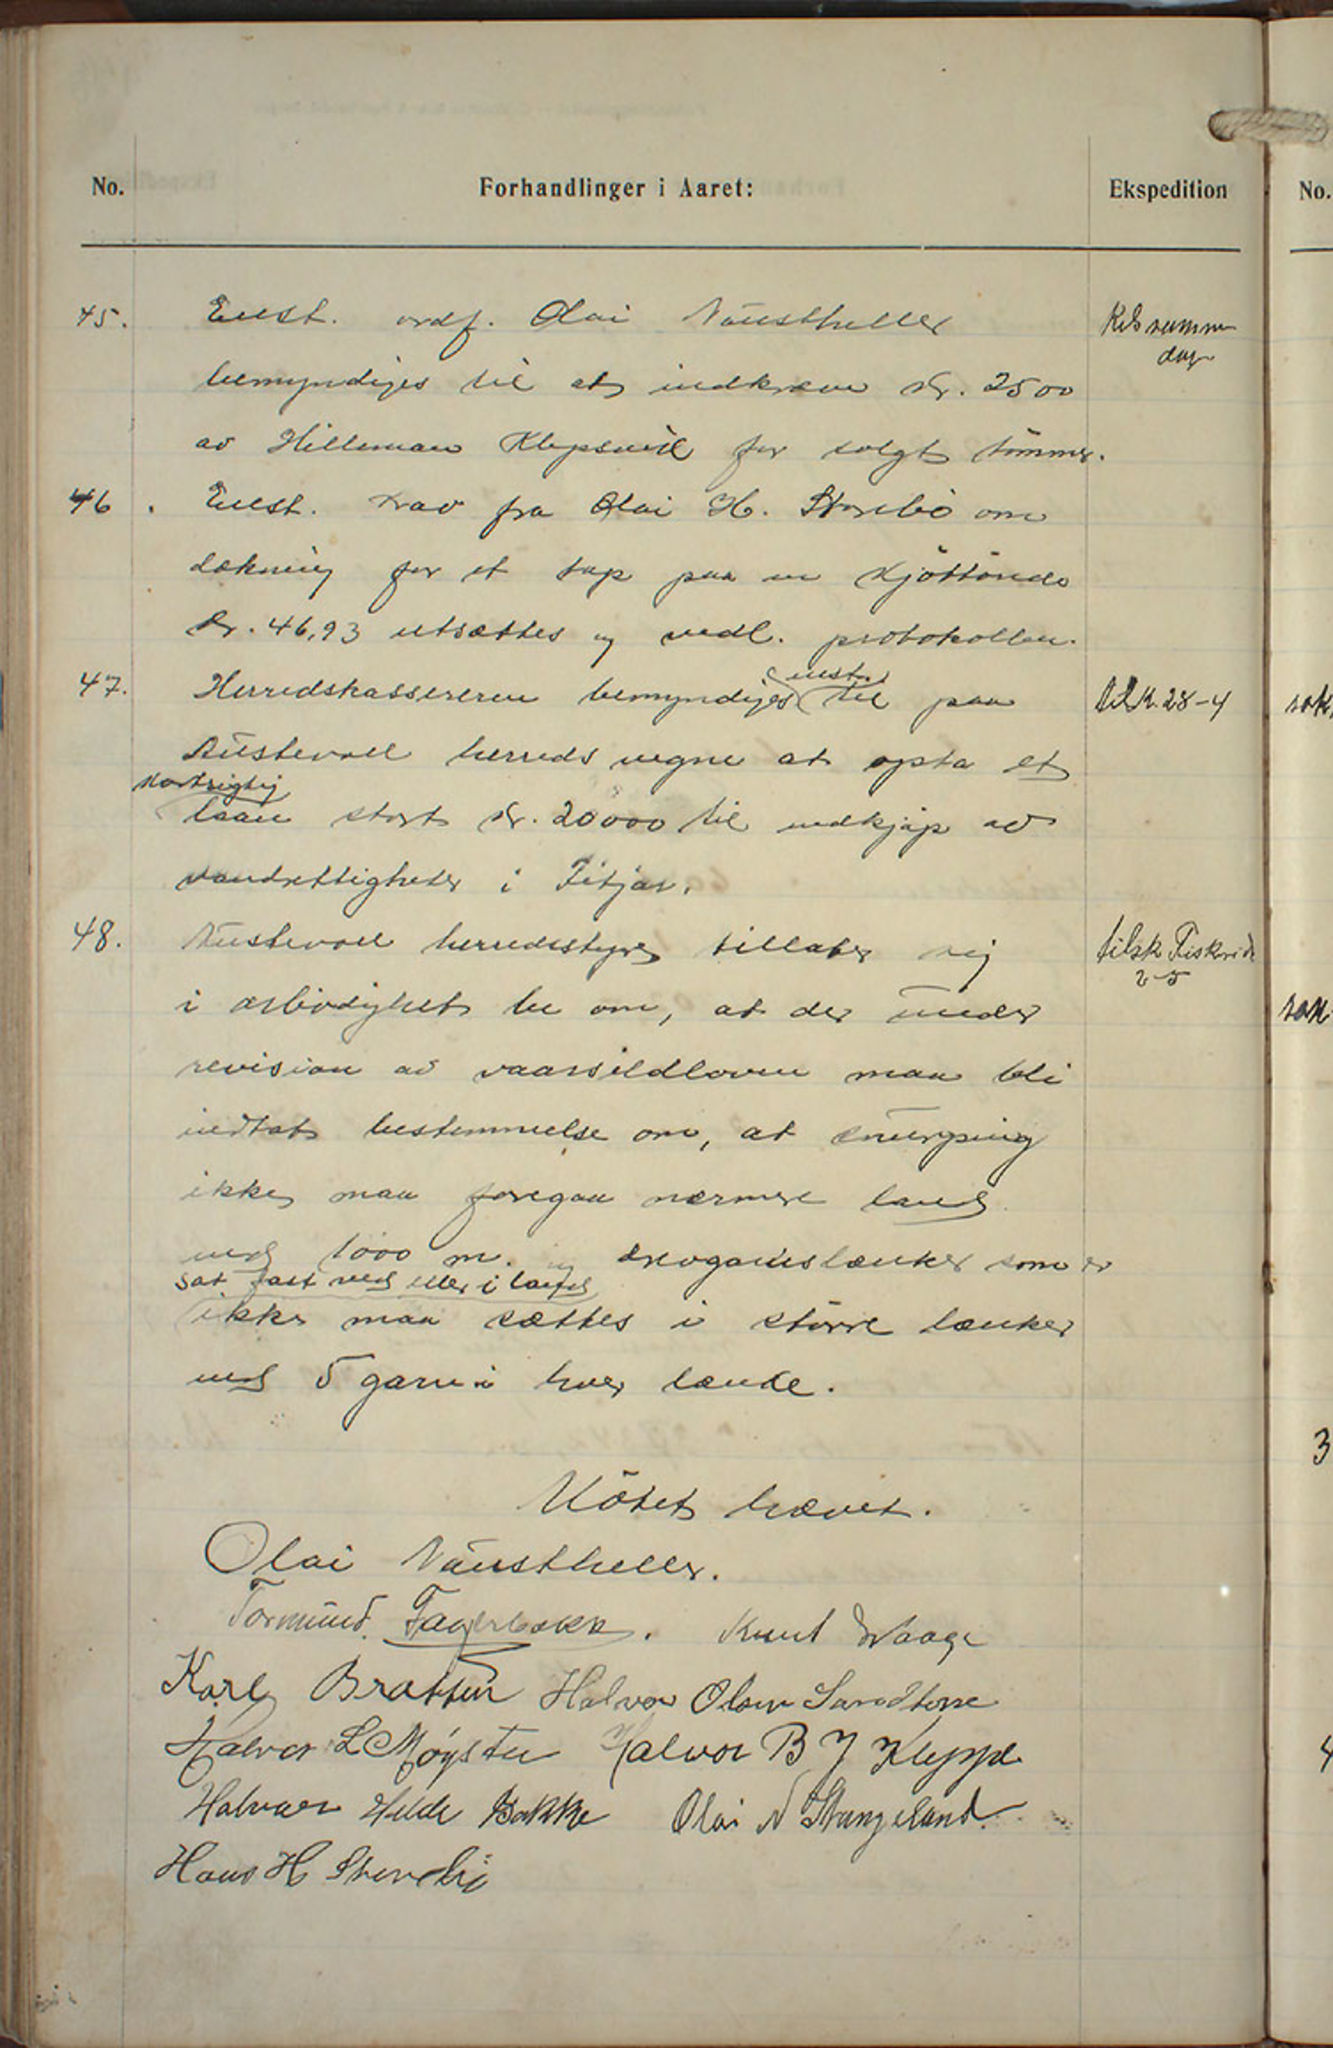 No. Forhandlinger i Aaret: Ekspedition No.
45. Enst. ordf. Olai Naustheller
bemyndiges til at indkræve kr. 2500
av Hilleman Klepsvik for solgt tömmer.
samme
dag
46. Enst. Krav fra Olai H. Storebö om
dækning for et tap paa en kjöttönde
kr. 46,93 utsættes og vedl. protokollen.
47. Herredskassereren bemyndiges enst. til paa
Austevoll herreds vegne at opta et
kortsigtig
laan stort kr. 20000 til indkjöp av
vandrettigheter i Fitjar.
28-4
48. Austevoll herredsstyre tillater sig
i ærbödighet be om, at der under
revision av vaarsildloven maa bli
indtat bestemmelse om, at snurping
ikke maa foregaa nærmere land
end 1000 m. og drivgarnslænker som er
sat fast ved eller i land
ikke maa sættes i större lænker
end 5 garn i hver lænke.
tilsk
2-5
Mötet hævet.
Olai Naustheller.
Tormund Fagerbakk. Knut Waage
Karl Bratten Halvor Olsen Sandtorv
Halvor L Møgster Halvor B J Kleppe
Halvor Helde Bakke Olai N Stangeland
Hans H Storebö
sak
sak
3
4